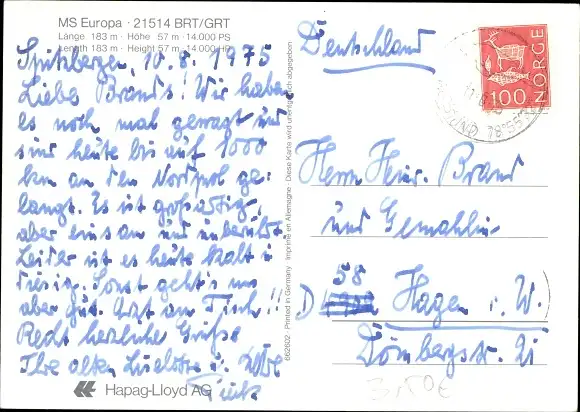 MS Europa · 21514 BRT/GRT
Länge 183 m · Höhe 57 m · 14.000 PS
Length 183 m · Height 57 m · 14.000 HP
Spitzbergen, 10.8.1975
Liebe Brands! Wir haben
es noch mal gewagt und
sind heute bis auf 1000
km an den Nordpol ge-
langt. Es ist großartig,
aber einsam und unberührt.
Leider ist es heute kalt u.
diesig. Sonst geht's uns
aber gut. Arzt am Tisch!!
Recht herzliche Grüße
Ihre alten
Hapag-Lloyd AG
662602 Printed in Germany Imprimé en Allemagne · Diese Karte wird unentgeltlich abgegeben
Deutschland
NORGE
100
Herrn Heinr. Brand
und Gemahlin
D 58 Hagen i. W.
Dömbergstr. 21
3,50€